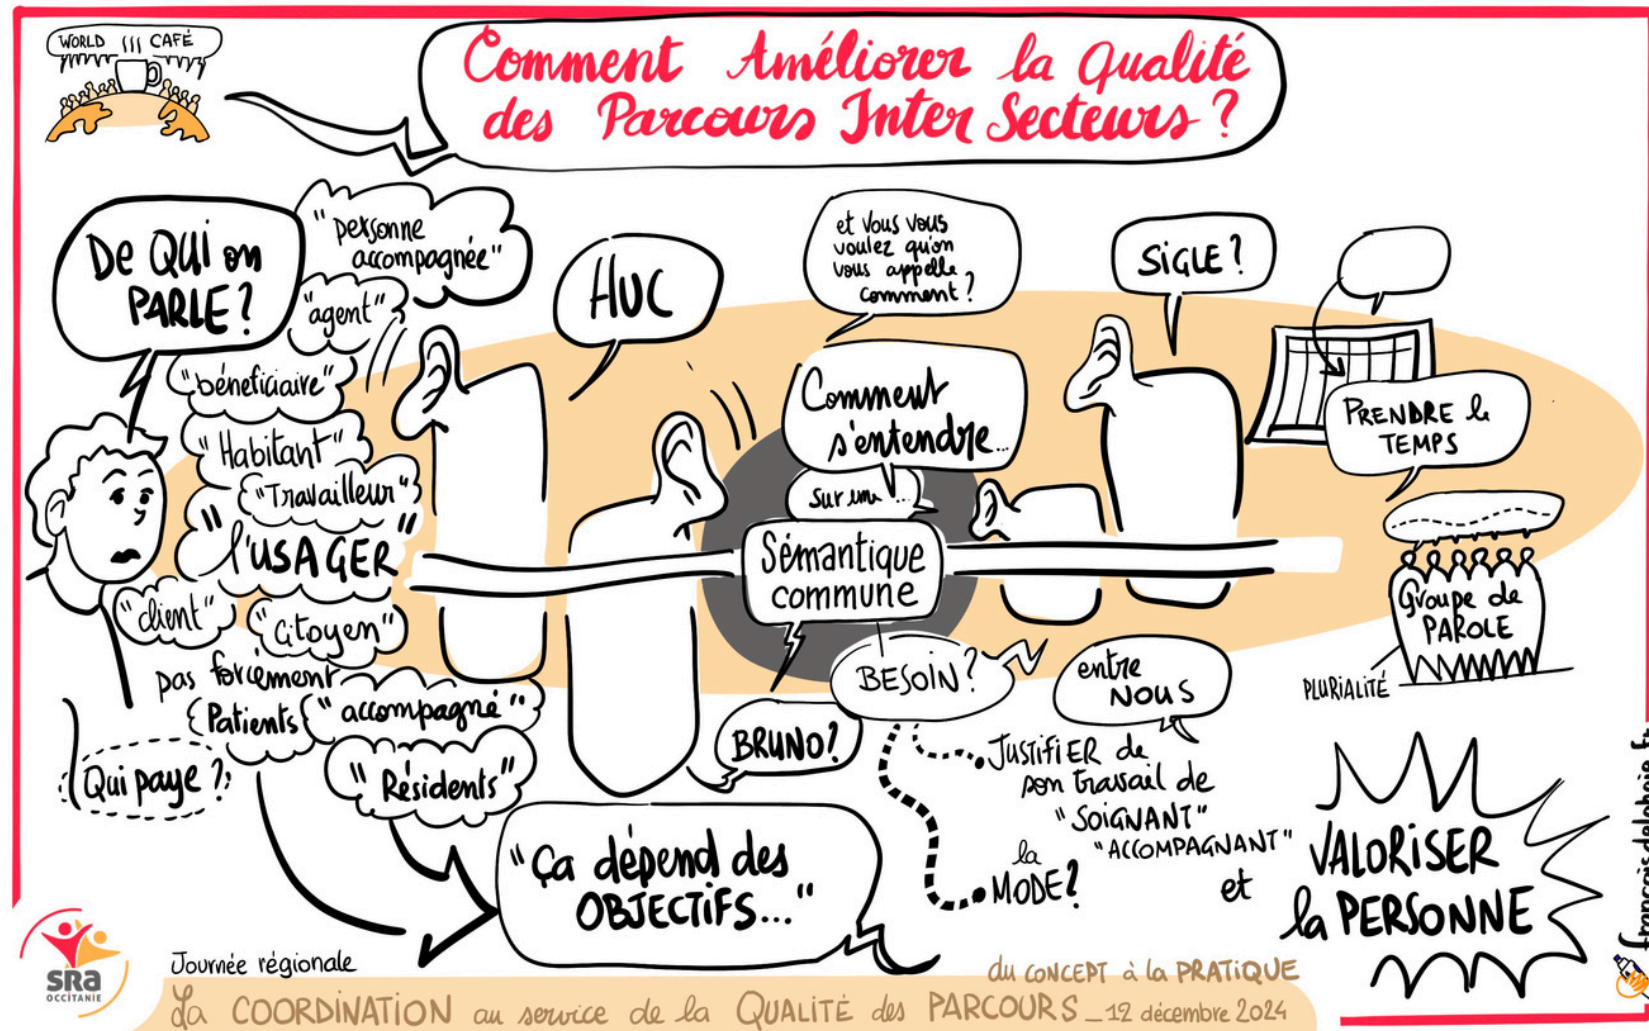 WORLD CAFÉ
Comment Améliorer la Qualité
des Parcours Inter Secteurs ?
De QUI on
PARLE ?
"personne
accompagnée"
"agent"
"béneficiaire"
"Habitant"
"Travailleur"
"l'USAGER"
"client"
"Citoyen"
pas forcément
Patients
"accompagné"
"Résidents"
Qui paye ?
HUC
et vous vous
voulez qu'on
vous appelle
comment ?
Comment
s'entendre...
sur une ...
Sémantique
commune
SIGLE ?
PRENDRE le
TEMPS
Groupe de
PAROLE
PLURIALITÉ
BESOIN ?
entre
NOUS
BRUNO ?
JUSTIFIER de
son travail de
"SOIGNANT"
"ACCOMPAGNANT"
la
MODE ?
et
VALORISER
la PERSONNE
"Ça dépend des
OBJECTIFS..."
sra
OCCITANIE
Journée régionale
du CONCEPT à la PRATIQUE
La COORDINATION au service de la QUALITÉ des PARCOURS _ 12 décembre 2024